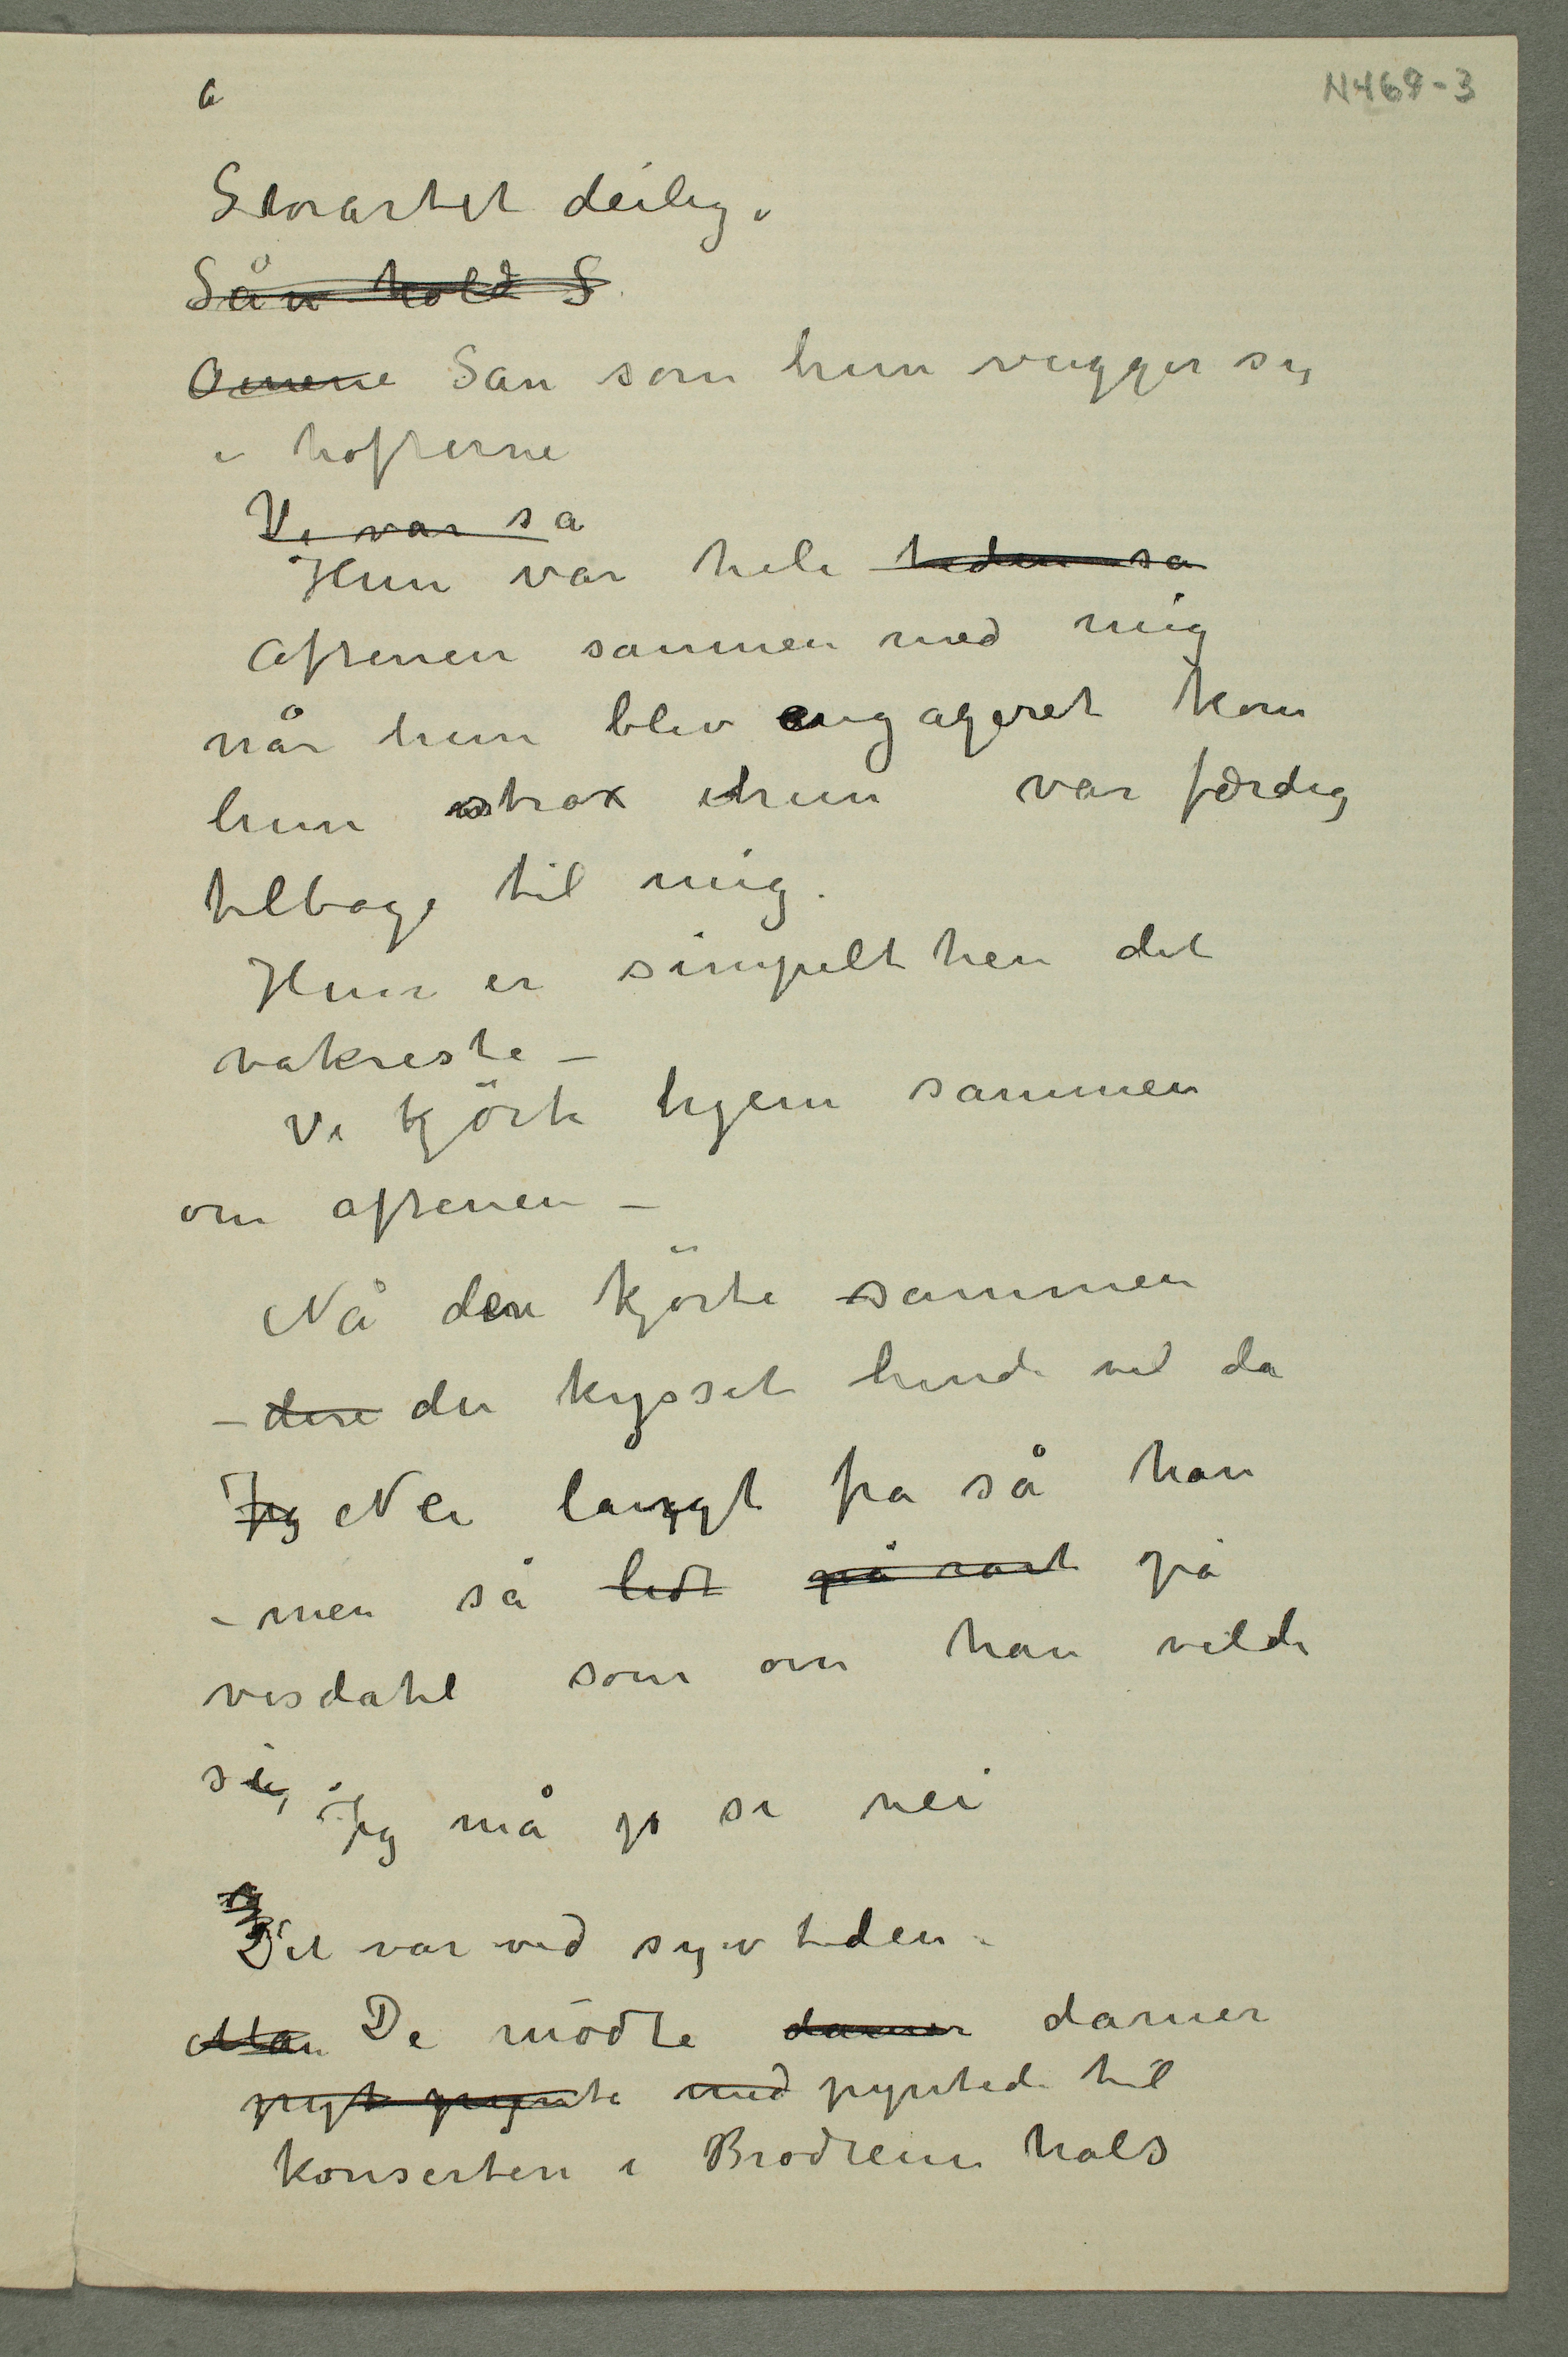 a
N469-3
Storartet deilig.
Sån hold S
Ømene San som hun vugger sig
i hofterne
Vi var sa
Hun var hele tiden sa
aftenen sammen med mig
når hun blev engageret kom
hun strax hun var færdig
tilbage til mig.
Hun er simpelt hen det
vakreste –
Vi kjörte hjem sammen
om aftenen –
Nå den kjörte sammen
– dere du kysset hende vel da
Jeg Nei langgt fra så han
– men så lidt på rart på
visdahl som om han vilde
si,
Jeg må jo si nei
Det var ved syv tiden.
Man De mödte damer damer
pyt pynte med pyntede til
Konserten i Brödrene hals